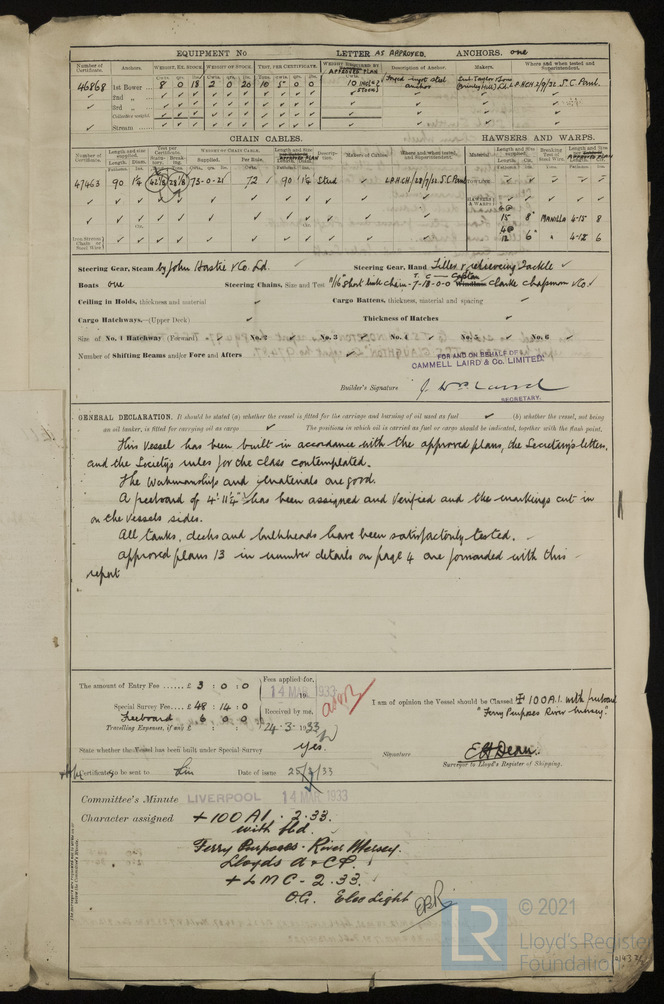 EQUIPMENT No LETTER AS APPROVED. ANCHORS. one
Number of Certificate. Anchors. WEIGHT, EX. STOCK WEIGHT OF STOCK TEST, PER CERTIFICATE. WEIGHT REQUIRED BY APPROVED PLAN Description of Anchor. Makers. Where and when tested, and Superintendent.
46868 1st Bower 8 0 18 2 0 20 10 5 0 0 10
2nd „
3rd „
Collective weight
Stream
CHAIN CABLES. HAWSERS AND WARPS.
Number of Certificate. Length and size supplied. Test per Certificate. WEIGHT OF CHAIN CABLE. Length and Size APPROVED PLAN Description. Makers of Cables. Where and when tested, and Superintendent. Material Length and Size Supplied. Breaking Test of Steel Wire. Length and Size APPROVED PLAN
47463 90 73-0-21 72 90 Stud LPHCH/28/9/32 S.C. Paul TOWLINES
HAWSERS & WARPS
15 8" MANILLA 4-15 8
12 6" " 4-12 6
Iron Stream Chain or Steel Wire
Steering Gear, Steam by John Hastie & Co. Ld. Steering Gear, Hand Tiller & relieving Tackle
Boats one Steering Chains, Size and Test 11/16" short link chain - 7-18-0-0 Capstan Windlass Clarke Chapman & Co.
Ceiling in Holds, thickness and material Cargo Battens, thickness, material and spacing
Cargo Hatchways.—(Upper Deck) Thickness of Hatches
Size of No. 1 Hatchway (Forward) No. 2 No. 3 No. 4 No. 5 No. 6
Number of Shifting Beams and/or Fore and Afters
FOR AND ON BEHALF OF
CAMMELL LAIRD & Co. LIMITED.
Builder's Signature
SECRETARY.
GENERAL DECLARATION. It should be stated (a) whether the vessel is fitted for the carriage and burning of oil used as fuel (b) whether the vessel, not being
an oil tanker, is fitted for carrying oil as cargo The positions in which oil is carried as fuel or cargo should be indicated, together with the flash point.
This Vessel has been built in accordance with the approved plans, the Secretary's letters,
and the Society's rules for the class contemplated.
The Workmanship and Materials are good.
A freeboard of 4' 11¼" has been assigned and verified and the markings cut in
on the vessels sides.
All tanks, decks and bulkheads have been satisfactorily tested.
approved plans 13 in number details on page 4 are forwarded with this
report
The amount of Entry Fee ...... £ 3 : 0 : 0
Fees applied for,
14 MAR. 1933
Special Survey Fee.... £ 48 : 14 : 0
Received by me,
Freeboard 6 0 0
Travelling Expenses, if any £
24-3-1933
I am of opinion the Vessel should be Classed ✠ 100A.1. with freeboard
"Ferry Purposes River Mersey."
State whether the Vessel has been built under Special Survey Yes.
Signature
Surveyor to Lloyd's Register of Shipping.
Certificate to be sent to Liv Date of issue 25/3/33
Committee's Minute LIVERPOOL 14 MAR. 1933
Character assigned + 100 A1. 2.33.
with fbd.
Ferry Purposes. River Mersey.
Lloyds A & CP.
+ LMC - 2.33.
O.G. Elec Light
LR
© 2021
Lloyd's Register
Foundation